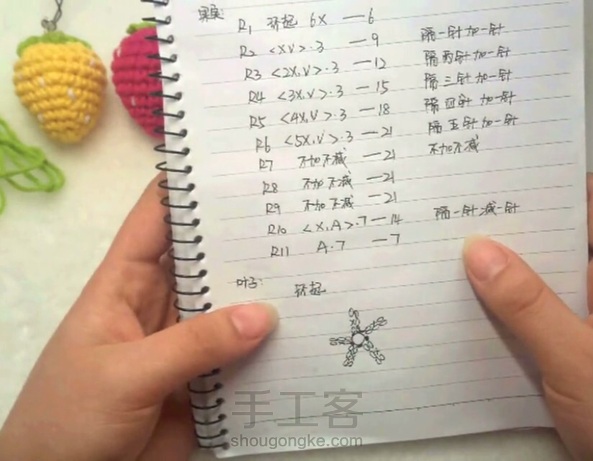 果实 R1 环起 6X — 6
R2 <X,V>·3 — 9 隔一针加一针
R3 <2X,V>·3 — 12 隔两针加一针
R4 <3X,V>·3 — 15 隔三针加一针
R5 <4X,V>·3 — 18 隔四针加一针
R6 <5X,V>·3 — 21 隔五针加一针
R7 不加不减 — 21 不加不减
R8 不加不减 — 21
R9 不加不减 — 21
R10 <X,A>·7 — 14 隔一针减一针
R11 A·7 — 7
叶子: 环起
手工客
shougongke.com